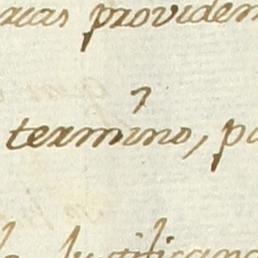 rias providen
termino, pa
justifican